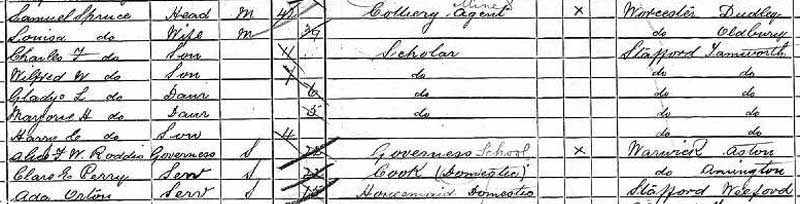 Samuel Spruce Head M 41 Colliery Agent Mine x Worcester Dudley
Louisa do Wife M 39 do Oldbury
Charles F do Son Scholar Stafford Tamworth
Wilfred W do Son do do do
Gladys L do Daur 6 do do do
Marjorie H do Daur 5 do do do
Harry C do Son 4 do do
Alice F W Roddis Governess S Governess School x Warwick Aston
Clara E Perry Serv S 22 Cook (Domestic) do Amington
Ada Orton Serv S 15 Housemaid Domestic Stafford Weeford